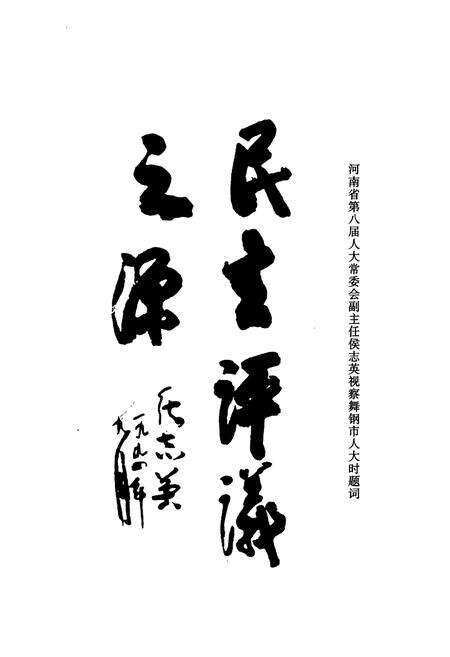 河南省第八届人大常委会副主任侯志英视察舞钢市人大时题词
民主评議
之源
侯志英
一九九四年
九月